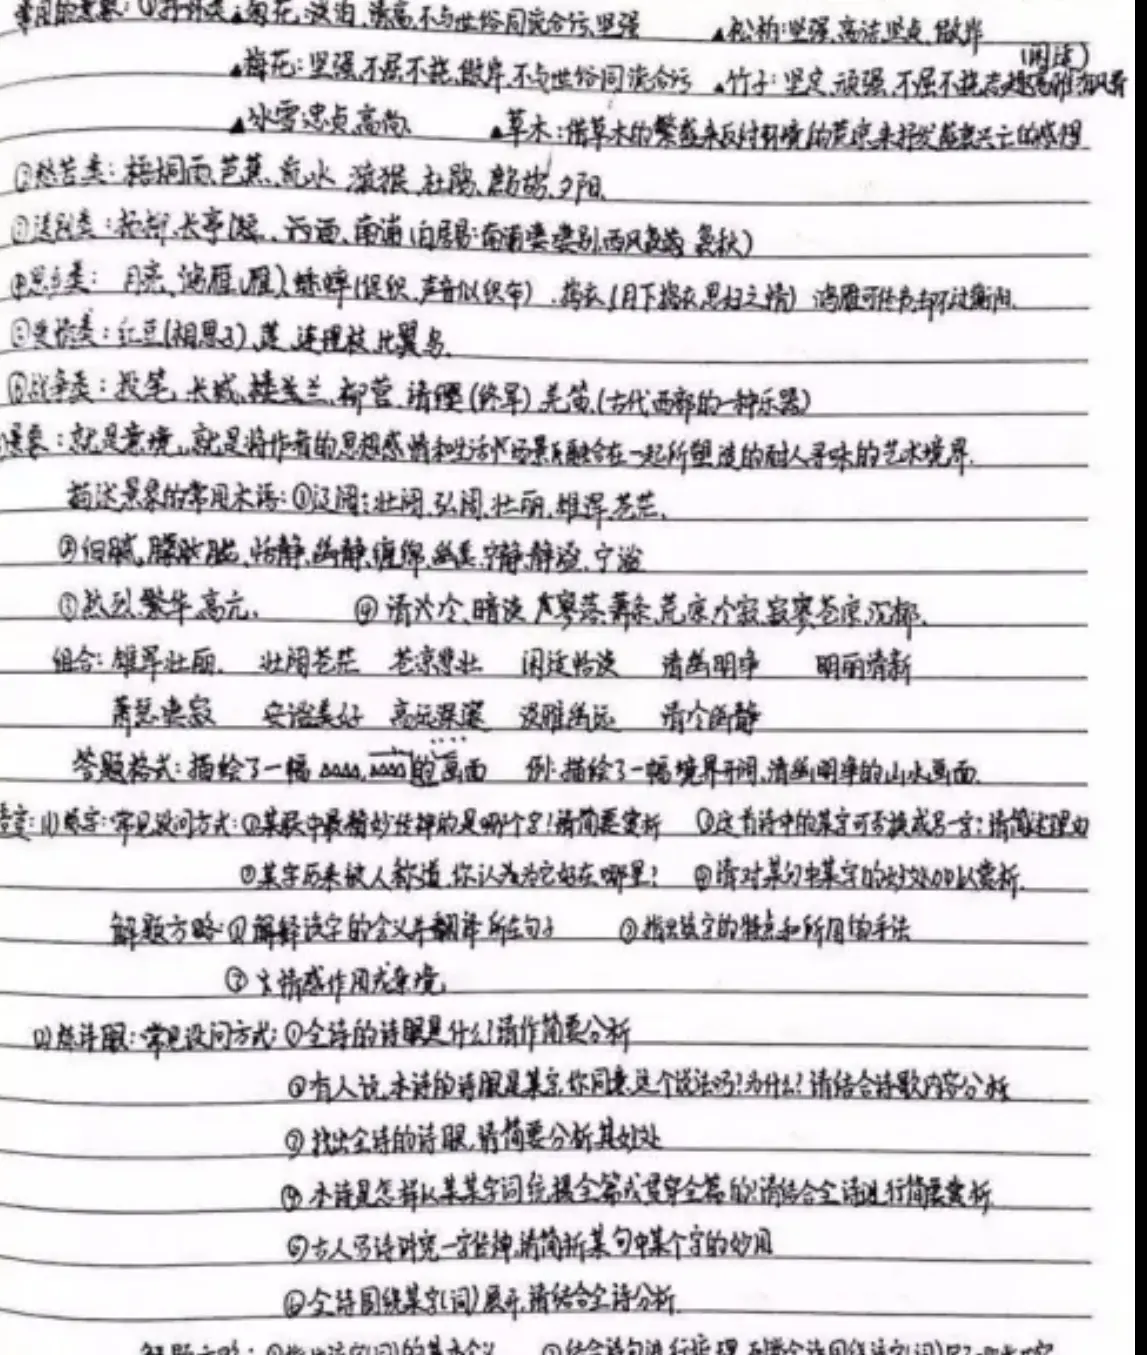 常用的意象：①抒怀类▲菊花：淡泊、清高、不与世俗同流合污、坚强 ▲松柏：坚强、高洁、坚贞、傲岸
▲梅花：坚强、不屈不挠、傲岸、不与世俗同流合污 ▲竹子：坚定、顽强、不屈不挠、志趣高雅
(闲适)
▲冰雪：忠贞、高尚 ▲草木：借草木的繁盛来反衬环境的荒凉来抒发盛衰兴亡的感慨
②愁苦类：梧桐雨、芭蕉、流水、猿猴、杜鹃、鹧鸪、夕阳、
③送别类：杨柳、长亭、酒、南浦(白居易：南浦凄凄别，西风袅袅秋)
④思乡类：月亮、鸿雁(雁)、蟋蟀(促织，声音似织布)、捣衣(月下捣衣思妇之情) 鸿雁可传书却不过衡阳.
⑤爱情类：红豆(相思子)、莲、连理枝、比翼鸟、
⑥战争类：投笔、长城、楼兰、柳营、请缨(终军)、羌笛(古代西部的一种乐器)
景象：就是意境，就是将作者的思想感情和生活场景融合在一起所塑造的耐人寻味的艺术境界.
描述景象的常用术语：①辽阔：壮阔、弘阔、壮丽、雄浑、苍茫、
②细腻、朦胧、恬静、幽静、缠绵、宁静、静谧、宁谧
③热烈、繁华、高亢、 ④清冷、暗淡、寥落、萧条、荒凉、孤寂、寂寥、苍凉、沉郁、
组合：雄浑壮丽、 壮阔苍茫 苍凉悲壮 闲适恬淡 清幽明净 明丽清新
萧瑟凄寂 安谧美好 高远深邃 淡雅幽远 清冷幽静
答题格式：描绘了一幅△△△△，△△△△的画面 例：描绘了一幅境界开阔，清幽明净的山水画面.
语言：(1)炼字：常见设问方式：①某联中最精妙传神的是哪个字？请简要赏析 ②这首诗中的某字可否换成另一字？请简述理由
③某字历来被人称道，你认为它好在哪里？ ④请对某句中某字的妙处加以赏析.
解题方略：①解释该字的含义并翻译所在句子 ②指出该字的特点和所用的手法
③情感作用或意境.
(2)炼诗眼：常见设问方式：①全诗的诗眼是什么？请作简要分析
②有人说，本诗的诗眼是某字，你同意这个说法吗？为什么？请结合诗歌内容分析
③找出全诗的诗眼，请简要分析其妙处
④本诗是怎样以某某字词统摄全篇或贯穿全篇的？请结合全诗进行简要赏析
⑤古人写诗讲究一字传神，请简析某句中某个字的妙用
⑥全诗围绕某字(词)展开，请结合全诗分析